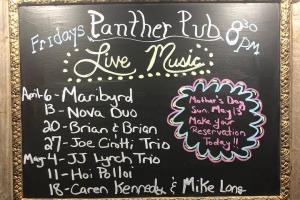 Fridays Panther Pub 8:30 PM
Live Music
April 6 - Maribyrd
13 - Nova Duo
20 - Brian & Brian
27 - Joe Ciotti Trio
May 4 - JJ Lynch Trio
11 - Hoi Polloi
18 - Caren Kennedy & Mike Lang
Mother's Day
Sun. May 13
Make your
Reservation
Today!!